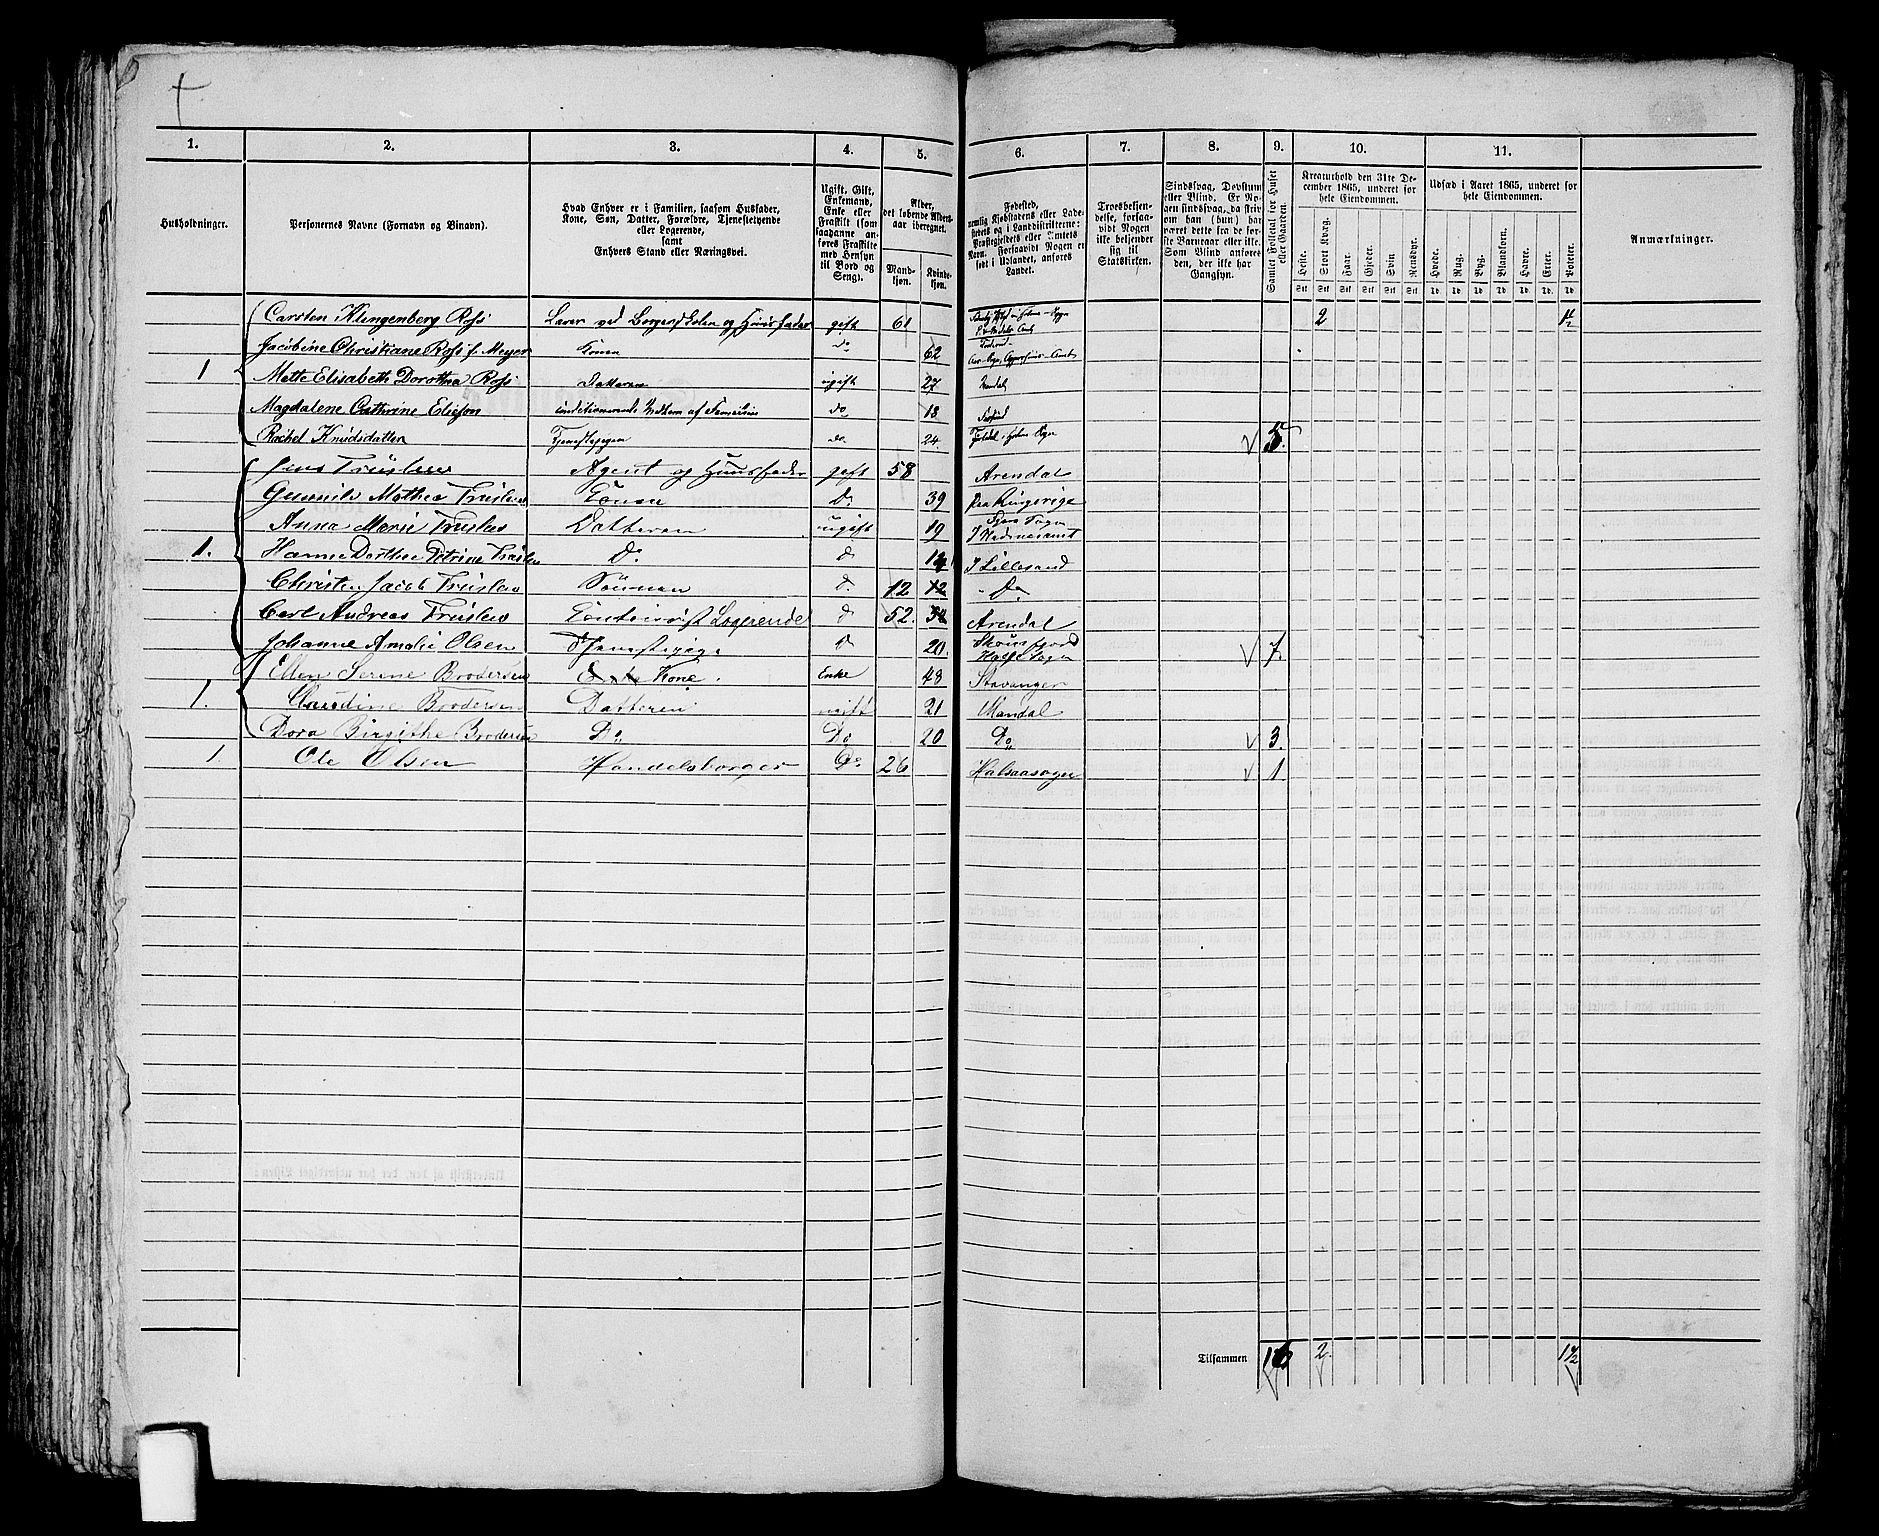 1. 2. 3. 4. 5. 6. 7. 8. 9. 10. 11.
Husholdninger.
Personernes Navne (Fornavn og Binavn).
Hvad Enhver er i Familien, saasom Husfader,
Kone, Søn, Datter, Forældre, Tjenestetyende
eller Logerende,
samt
Enhvers Stand eller Næringsvei.
Ugift, Gift,
Enkemand,
Enke eller
Fraskilt (som
saadanne an-
føres Fraskilte
med Hensyn
til Bord og
Seng).
Alder,
det løbende Alders-
aar iberegnet.
Mand-
kjøn.
Kvinde-
kjøn.
Fødested,
nemlig Kjøbstadens eller Lade-
stedets og i Landdistrikterne:
Præstegjeldets eller Amtets
Navn. Forsaavidt Nogen er
født i Udlandet, anføres
Landet.
Troesbekjen-
delse, forsaa-
vidt Nogen
ikke bekjender
sig til
Statskirken.
Sindssvag, Døvstum
eller Blind. Er No-
gen sindssvag, da skriv
om han (hun) har
været dette fra de før-
ste Barneaar eller ikke.
Som Blind anføres
den, der ikke har
Gangsyn.
Samlet Folketal for Huset
eller Gaarden.
Kreaturhold den 31te De-
cember 1865, underet for
hele Eiendommen.
Heste. Stort Kvæg. Faar. Gjeder. Svin. Rensdyr.
Stk Stk Stk Stk Stk Stk
Udsæd i Aaret 1865, underet for
hele Eiendommen.
Hvede. Rug. Byg. Blandkorn. Havre. Erter. Poteter.
Td. Td. Td. Td. Td. Td. Td.
Anmærkninger.
Carsten Klingenberg Ross Lærer ved Borgerskolen og Huusfader gift 61 2 1½
Jacobine Christiane Ross f. Meyer Konen do 62
1 Mette Elisabeth Dorothea Ross Datteren ugift 27 Mandal
Magdalene Cathrine Eliesen do 18 Farsund
Rachel Knudsdatter Tjenestepigen do 24 5.
Jens Truslew Agent og Huusfader gift 58 Arendal
Gunnild Mathea Truslew Konen Do 39 Paa Ringerige
Anna Marie Truslew Datteren ugift 19
1. Hanne Dorthea Petrine Truslew Do. do 14 I Lillesand
Christen Jacob Truslew Sønnen do. 12 12 - Do
Carl Andreas Truslew Contorist Logerende do 52. 52 Arendal
Johanne Amalie Olsen Tjenestepige do 20. 7.
Ellen Serine Brodersen Kone. Enke 48 Stavanger
1. Brodersen Datteren ugift 21 Mandal
Dora Birgithe Brodersen Do Do 20 Do 3.
1 Ole Olsen Handelsborger Do 26 Halsaasogn 1
Tilsammen 16 2. 1½